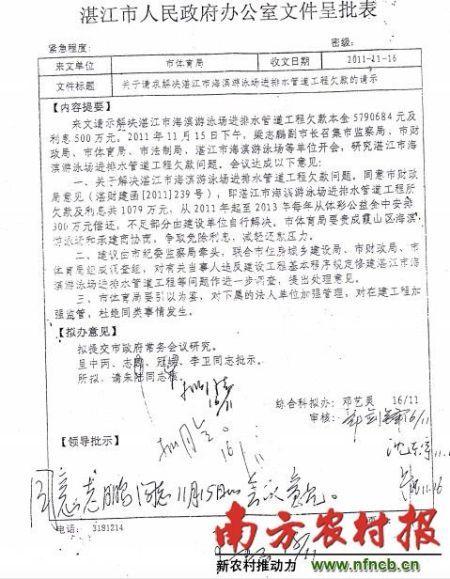 湛江市人民政府办公室文件呈批表
紧急程度: 密级:
来文单位 市体育局 收文日期 2011-11-16
文件标题 关于请求解决湛江市海滨游泳场进排水管道工程欠款的请示
【内容提要】
来文请示解决湛江市海滨游泳场进排水管道工程欠款本金5790684元及
利息500万元。2011年11月15日下午，梁志鹏副市长召集市监察局、市财
政局、市体育局、市法制局、湛江市海滨游泳场等单位开会，研究湛江市海
滨游泳场进排水管道工程欠款问题。会议达成以下意见:
一、关于解决湛江市海滨游泳场进排水管道工程欠款问题，同意市财政
局意见（湛财建函[2011]239号），即湛江市海滨游泳场进排水管道工程所
欠款及利息共1079万元，从2011年起至2013年每年从体彩公益金中安排
300万元偿还，不足部分由建设单位自行解决。市体育局要责成霞山区海滨
游泳场和承建商协商，争取免除利息，减轻还款压力。
二、建议由市纪委监察局牵头，联合市住房城乡建设局、市财政局、市
体育局组成调查组，对有关当事人违反建设工程基本程序规定修建湛江市海
滨游泳场进排水管道工程等问题作进一步调查，提出处理意见。
三、市体育局要引以为鉴，对下属的法人单位加强管理，对在建工程加
强监管，杜绝同类事情发生。
【拟办意见】
拟提交市政府常务会议研究。
呈中丙、志鹏、李卫同志批示。
所拟，请朱陆同志
16/11
综合科拟办: 邓艺灵 16/11
审核: 16/11
16/11
沈 11.16
【领导批示】
11.16
同意志鹏同志11月15日的会议意见。
电话: 3181214
16/11
南方农村报
新农村推动力 www.nfncb.cn